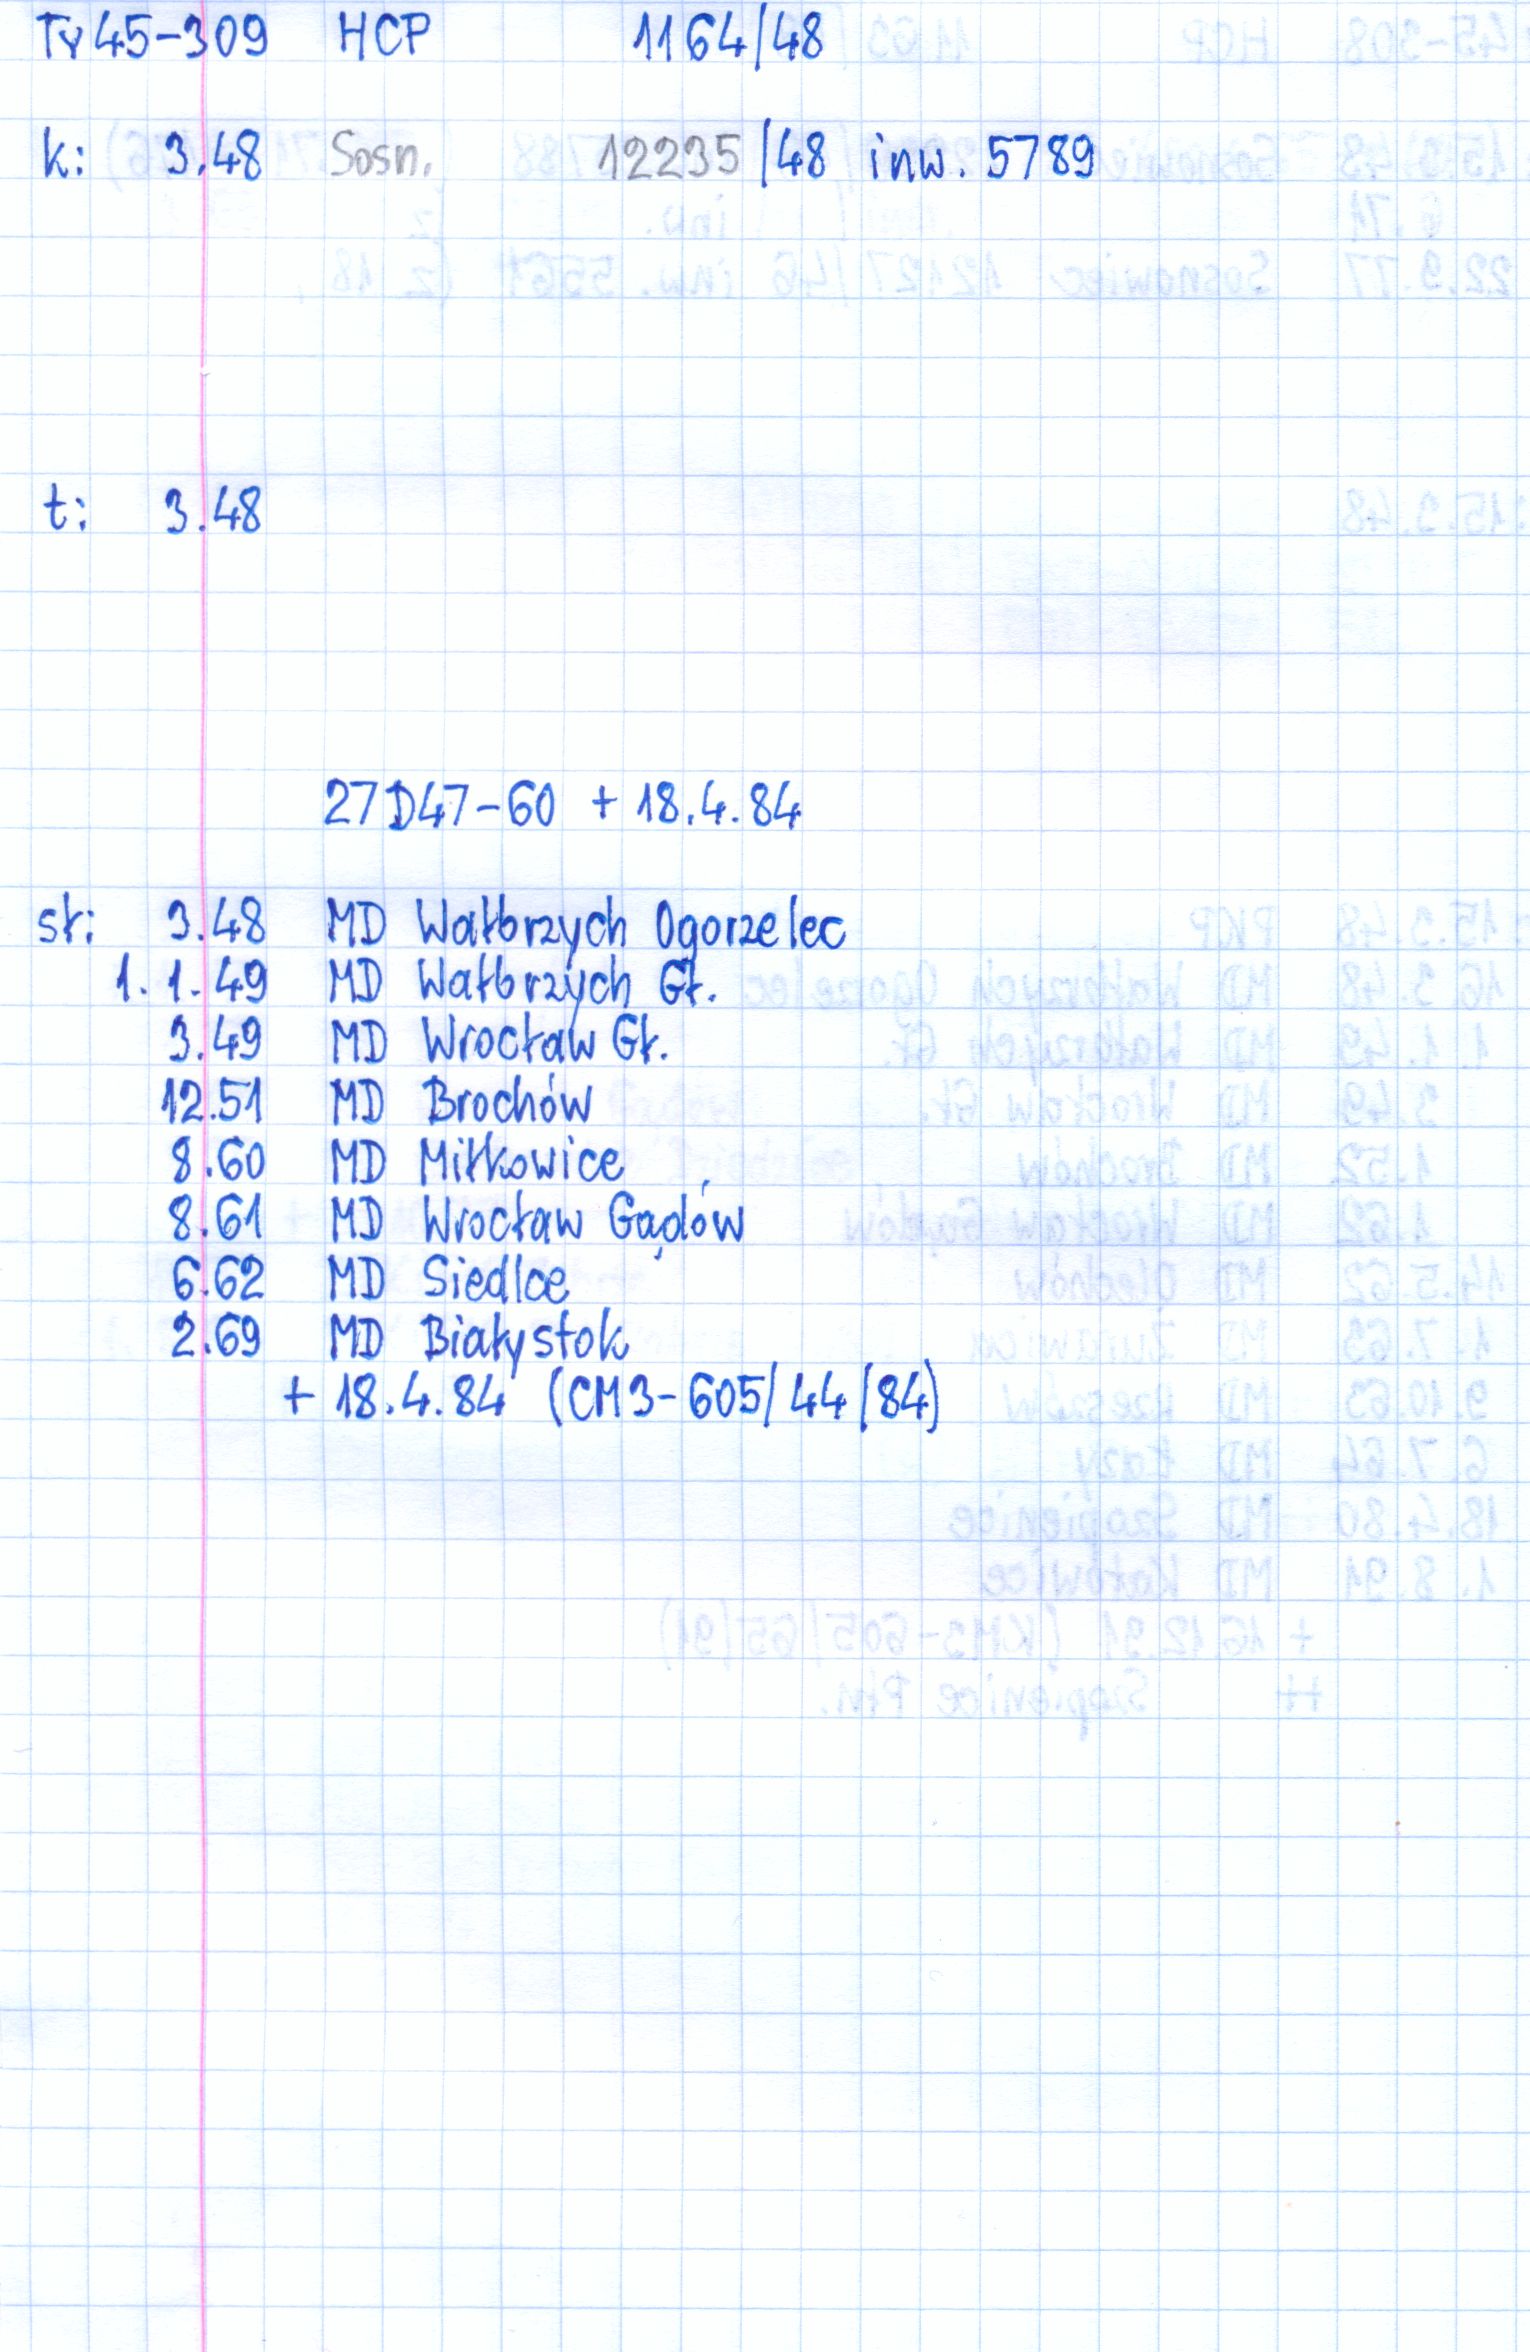 Ty45-309 HCP 1164/48
k: 3.48 Sosn. 12235/48 inw. 5789
t: 3.48
27D47-60 + 18.4.84
st: 3.48 MD Wałbrzych Ogorzelec
1.1.49 MD Wałbrzych Gł.
3.49 MD Wrocław Gł.
12.51 MD Brochów
8.60 MD Miłkowice
8.61 MD Wrocław Gądów
6.62 MD Siedlce
2.69 MD Białystok
+ 18.4.84 (CM3-605/44/84)